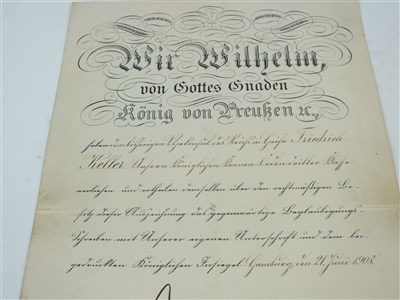 Wir Wilhelm,
von Gottes Gnaden
König von Preußen ꝛc.,
haben dem bisherigen in Friedrich
Keller Unseren Königlichen Kronen-Orden dritter Klasse
verliehen und ertheilen demselben über den rechtmäßigen Be-
sitz dieser Auszeichnung das gegenwärtige Beglaubigungs-
Schreiben mit Unserer eigenen Unterschrift und dem bei-
gedruckten Königlichen Insiegel. Hamburg, den 21. Juni 1905